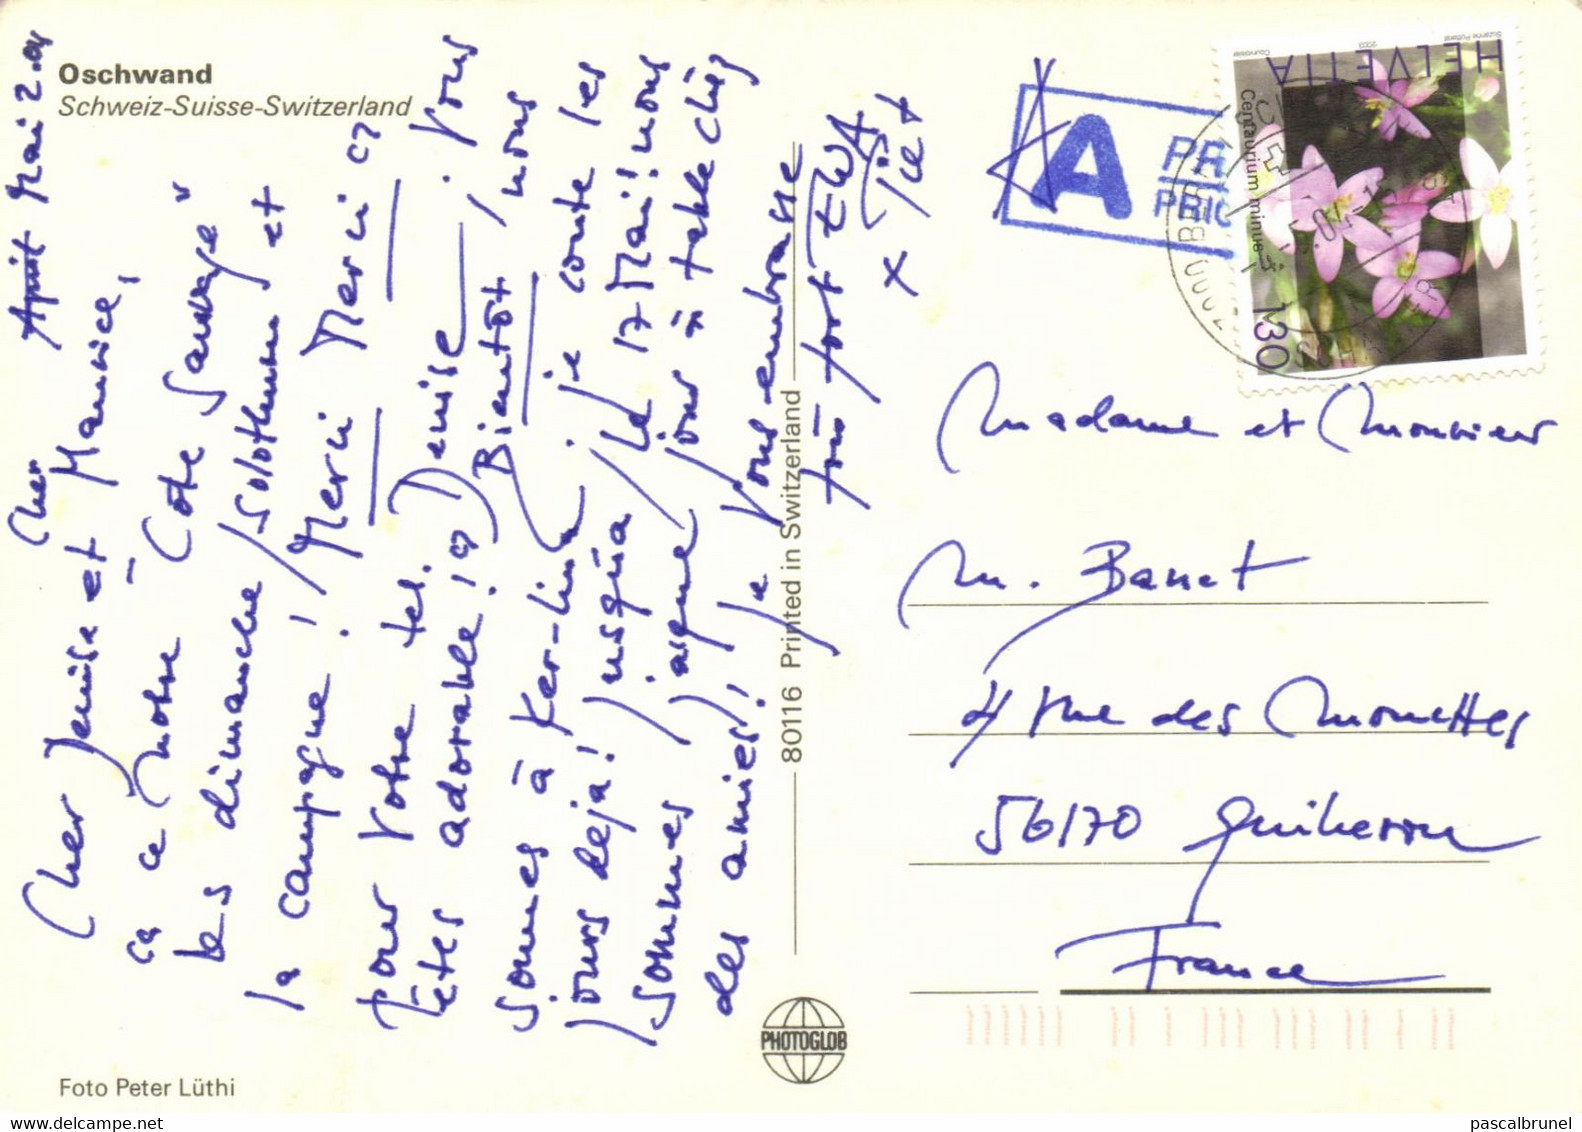 Oschwand
Schweiz-Suisse-Switzerland
April Mai 2.04
Cher
Cher Denise et Maurice,
ça c notre "Côte Sauvage"
les dimanche / Solothurn et
la campagne! / Merci Merci
pour votre tel. Denise. Vous
êtes adorable! Bientôt / nous
somes à Ker-
jours deja! / jusqúa / le 17 Mai! nous
je conte les
sommes jusque / jour à table chés
des amies! / Je Vous embrasse
très fort EWA
x
80116 Printed in Switzerland
PHOTOGLOB
Foto Peter Lüthi
A PR
PRIO
HELVETIA
Centaurium minus
130
2003
Madame et Monsieur
M. Banet
4 rue des Mouettes
56170 Quiberon
France
pascalbrunel